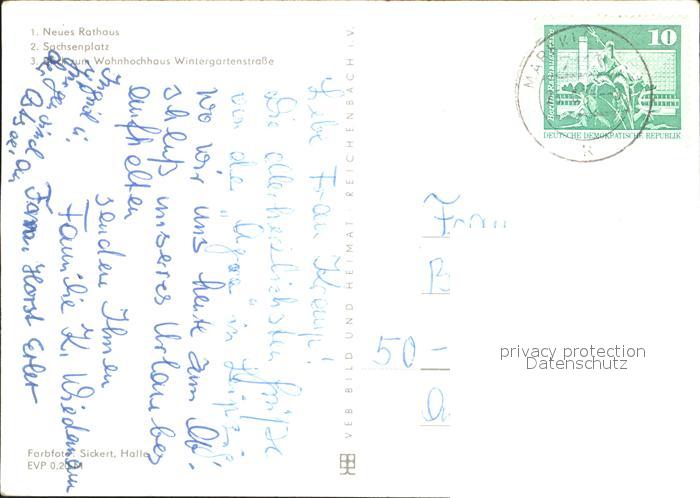 1. Neues Rathaus
2. Sachsenplatz
3. zum Wohnhochhaus Wintergartenstraße
Liebe Frau Krampf!
Die allerherzlichsten Grüße
von der "Agra" in Leipzig
wo wir uns heute zum Ab-
schluß unseres Urlaubes
aufhalten
senden Ihnen
Familie K. Wiedemann
Horst Erler
VEB BILD UND HEIMAT REICHENBACH I.V.
Farbfoto: Sickert, Halle
EVP 0,20 M
10
Berlin, Rathausstraße
DEUTSCHE DEMOKRATISCHE REPUBLIK
MARKKL
Frau
50-
privacy protection
Datenschutz